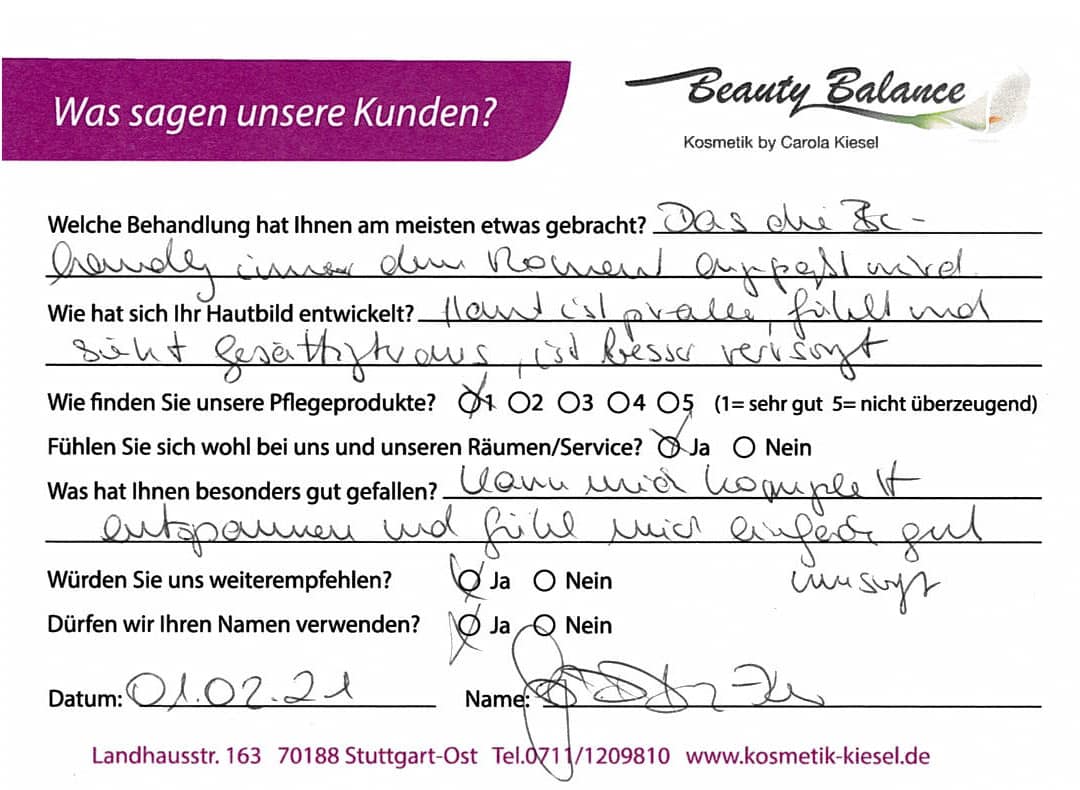 Was sagen unsere Kunden?
Beauty Balance
Kosmetik by Carola Kiesel
Welche Behandlung hat Ihnen am meisten etwas gebracht? Das die Be-
handlg immer dem Moment angepaßt wird
Wie hat sich Ihr Hautbild entwickelt? Haut ist praller, fühlt und
sieht gesättigter aus, ist besser versorgt
Wie finden Sie unsere Pflegeprodukte? 1 2 3 4 5 (1= sehr gut 5= nicht überzeugend)
Fühlen Sie sich wohl bei uns und unseren Räumen/Service? Ja Nein
Was hat Ihnen besonders gut gefallen? Kann mich komplett
entspannen und fühl mich einfach gut
umsorgt
Würden Sie uns weiterempfehlen? Ja Nein
Dürfen wir Ihren Namen verwenden? Ja Nein
Datum: 01.02.21 Name:
Landhausstr. 163 70188 Stuttgart-Ost Tel.0711/1209810 www.kosmetik-kiesel.de